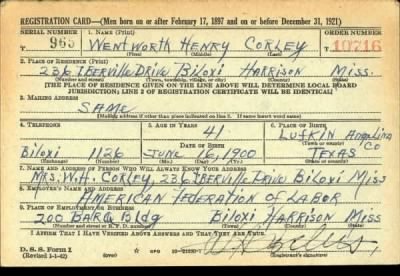 REGISTRATION CARD—(Men born on or after February 17, 1897 and on or before December 31, 1921)
SERIAL NUMBER 1. NAME (Print) ORDER NUMBER
965 WENTWORTH HENRY CORLEY 10716
(First) (Middle) (Last)
2. PLACE OF RESIDENCE (Print)
236 IBERVILLE DRIVE BILOXI HARRISON MISS.
(Number and street) (Town, township, village, or city) (County) (State)
[THE PLACE OF RESIDENCE GIVEN ON THE LINE ABOVE WILL DETERMINE LOCAL BOARD
JURISDICTION; LINE 2 OF REGISTRATION CERTIFICATE WILL BE IDENTICAL]
3. MAILING ADDRESS
SAME
[Mailing address if other than place indicated on line 2. If same insert word same]
4. TELEPHONE 5. AGE IN YEARS 6. PLACE OF BIRTH
41 LUFKIN Angelina Co
DATE OF BIRTH (Town or county)
BILOXI 1126 JUNE 1900 TEXAS
(Exchange) (Number) (Mo.) (Day) (Yr.) (State or country)
7. NAME AND ADDRESS OF PERSON WHO WILL ALWAYS KNOW YOUR ADDRESS
MRS. W.H. CORLEY, 236 IBERVILLE DRIVE BILOXI MISS
8. EMPLOYER'S NAME AND ADDRESS
AMERICAN FEDERATION OF LABOR
9. PLACE OF EMPLOYMENT OR BUSINESS
200 BARQ Bldg BILOXI HARRISON MISS
(Number and street or R. F. D. number) (Town) (County) (State)
I AFFIRM THAT I HAVE VERIFIED ABOVE ANSWERS AND THAT THEY ARE TRUE.
D. S. S. Form 1
(Revised 1-1-42)